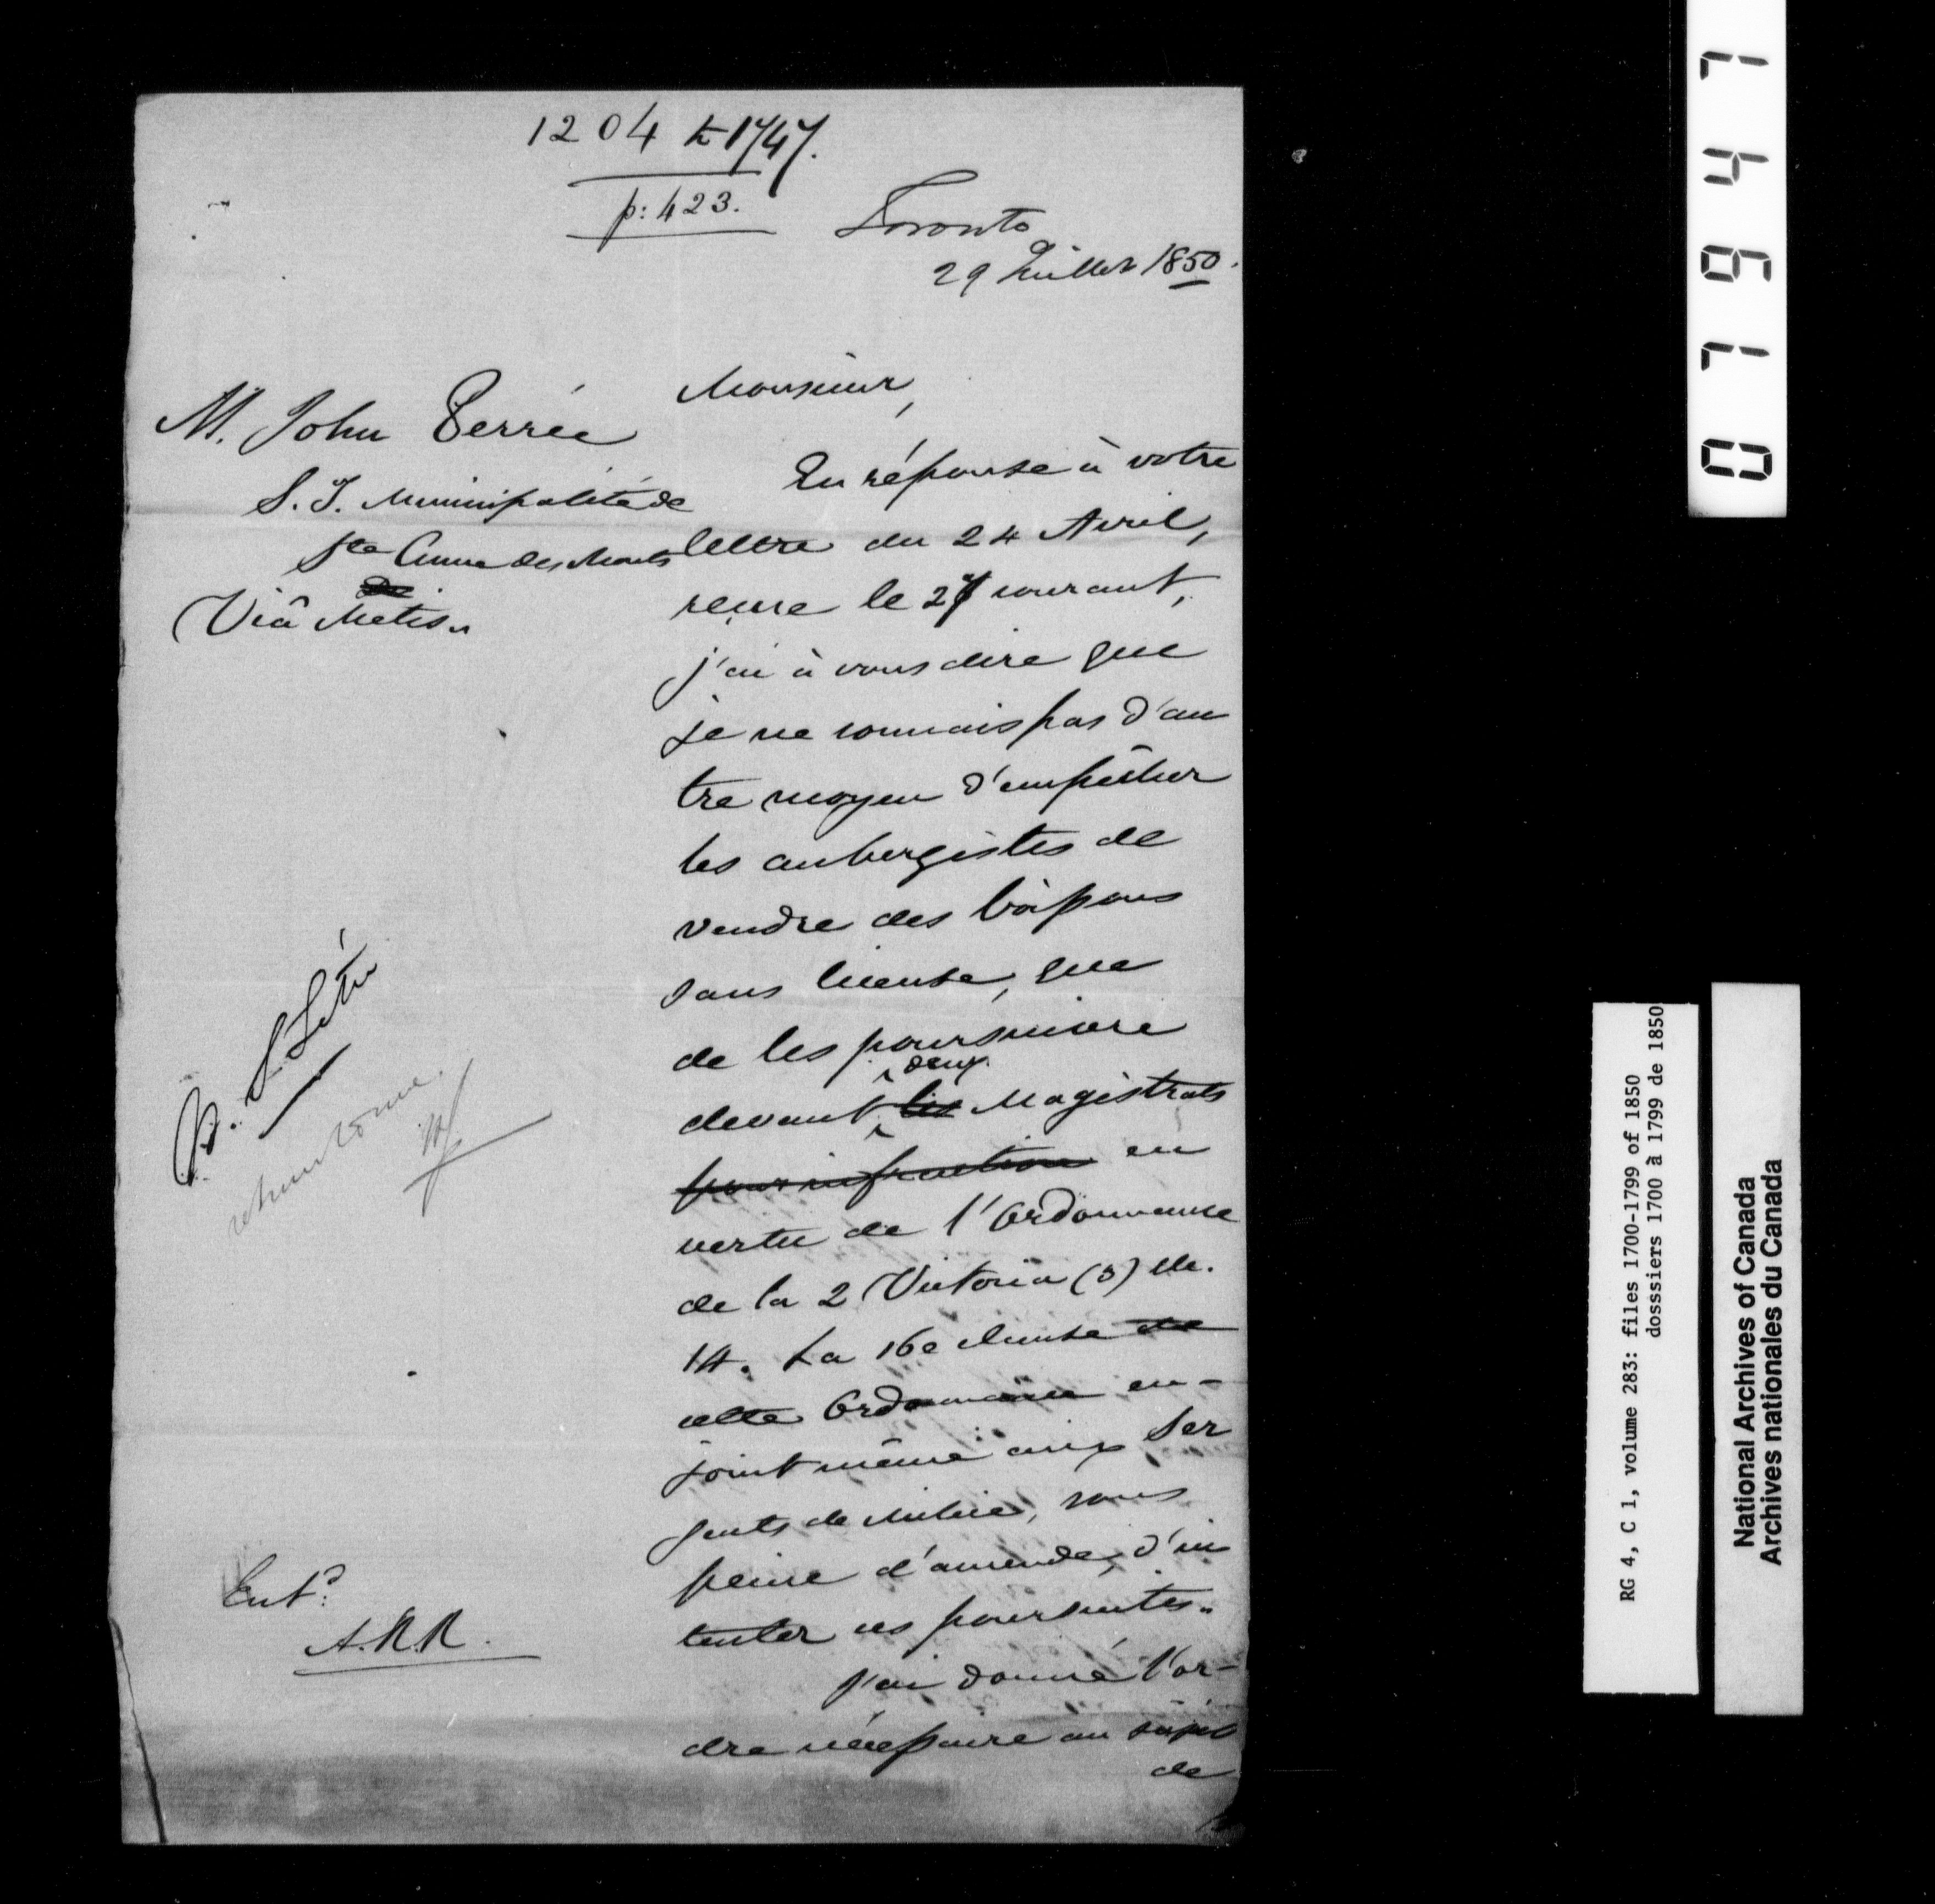 1204 & 1747.
p: 423.
Toronto
29 Juillet 1850.
M. John Perrée
S. T. Municipalité de
Ste Anne des Monts
Viâ Metis.
Monsieur,
En réponse à votre
lettre du 24 Avril,
reçue le 27 courant,
j'ai à vous dire que
je ne connais pas d'au
tre moyen d'empêcher
les aubergistes de
vendre des boissons
sans license, que
de les poursuivre
devant deux les Magistrats
pour infraction en
vertu de l'Ordonnance
de la 2 Victoria (3) ch.
14. La 16e clause de
cette Ordonnance en-
joint même aux Ser
gents de Milice, sous
peine d'amende, d'in
tenter ces poursuites.
J'ai donné l'or-
dre nécessaire au sujet
de
Entd.
A.R.R.
0 7 9 4 7
RG 4, C 1, volume 283: files 1700-1799 of 1850
dosssiers 1700 à 1799 de 1850
National Archives of Canada
Archives nationales du Canada